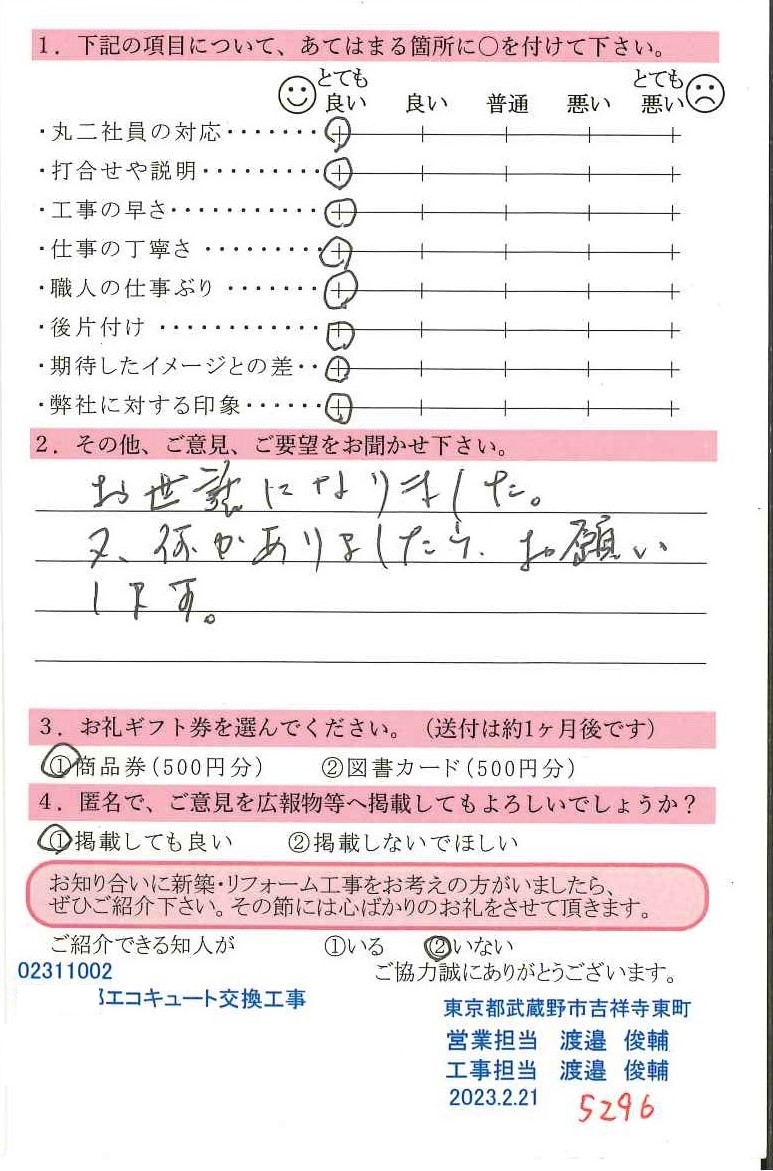 1. 下記の項目について、あてはまる箇所に○を付けて下さい。
とても良い 良い 普通 悪い とても悪い
・丸二社員の対応・・・・・・・
・打合せや説明・・・・・・・・・
・工事の早さ・・・・・・・・・・・
・仕事の丁寧さ・・・・・・・・・
・職人の仕事ぶり・・・・・・・
・後片付け・・・・・・・・・・・・
・期待したイメージとの差・・
・弊社に対する印象・・・・・・
2. その他、ご意見、ご要望をお聞かせ下さい。
お世話になりました。
又、何かありましたら、お願い
します。
3. お礼ギフト券を選んでください。（送付は約1ヶ月後です）
①商品券（500円分） ②図書カード（500円分）
4. 匿名で、ご意見を広報物等へ掲載してもよろしいでしょうか？
①掲載しても良い ②掲載しないでほしい
お知り合いに新築・リフォーム工事をお考えの方がいましたら、
ぜひご紹介下さい。その節には心ばかりのお礼をさせて頂きます。
ご紹介できる知人が ①いる ②いない
ご協力誠にありがとうございます。
02311002
エコキュート交換工事
東京都武蔵野市吉祥寺東町
営業担当 渡邉 俊輔
工事担当 渡邉 俊輔
2023.2.21
5296